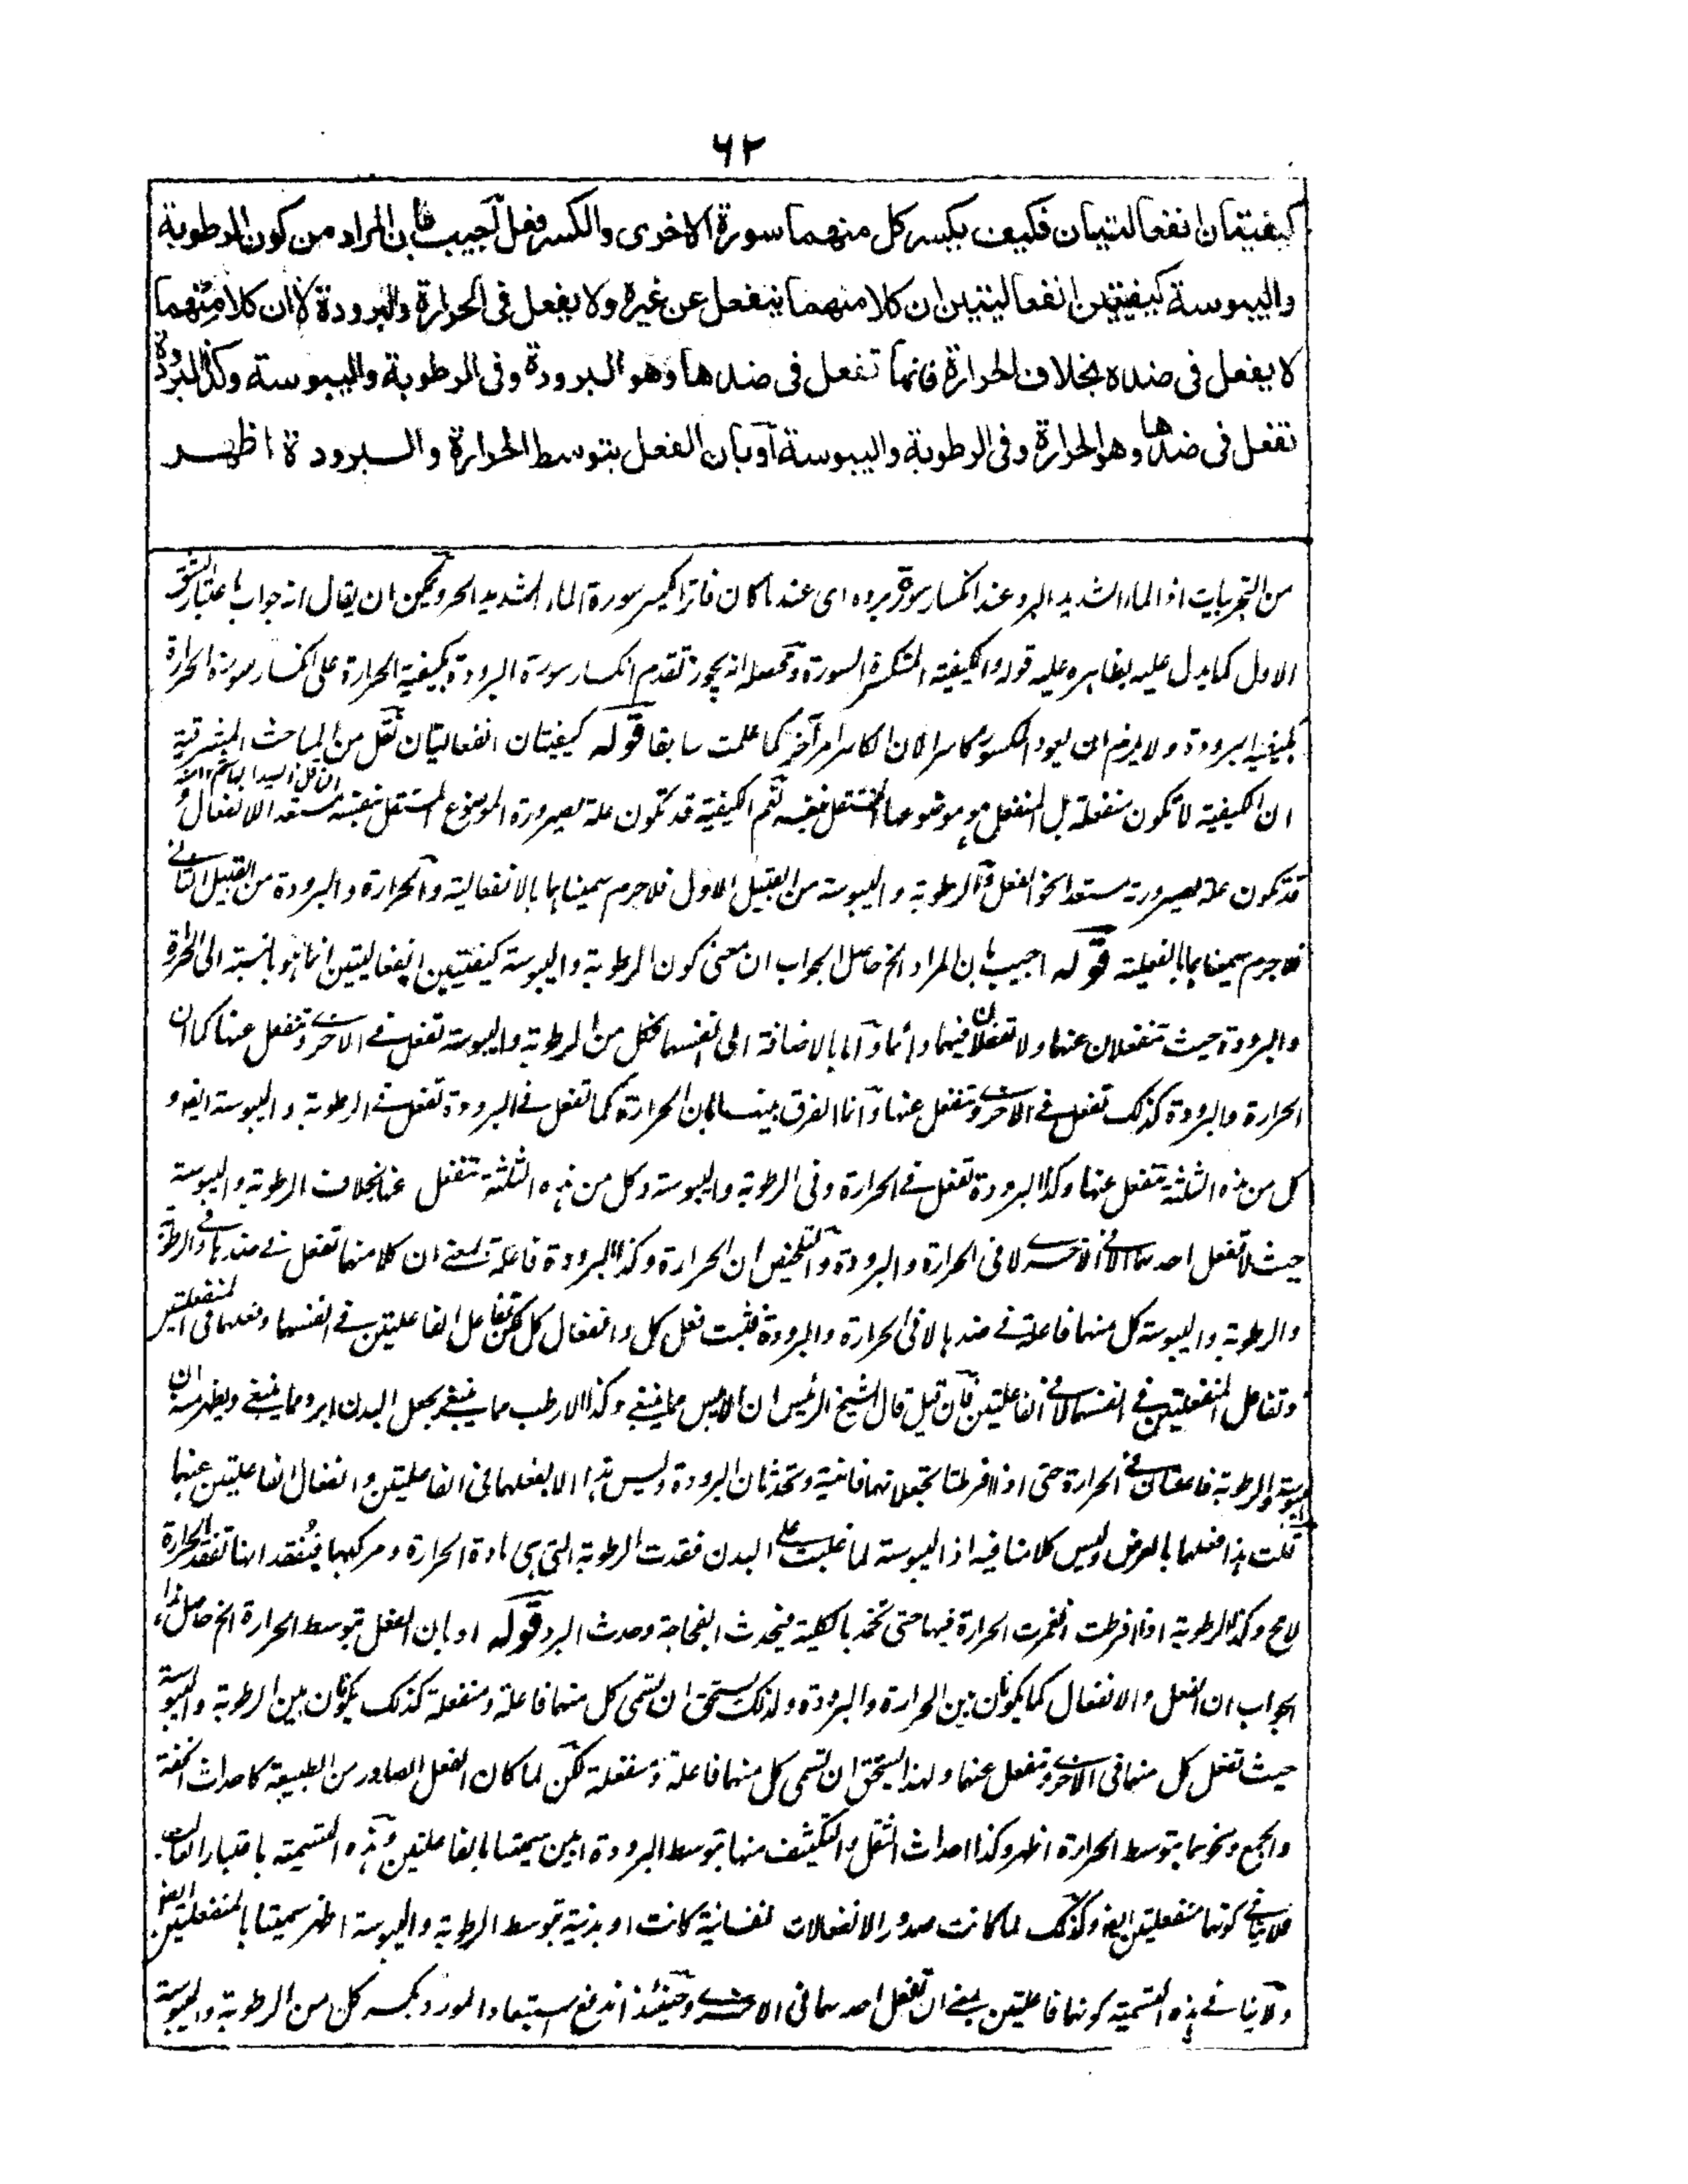 ٦٢
كيفيتان انفعاليتان فكيف يكسر كل منهما سورة الاخرى والكسر فعل اجيب بان المراد من كون الرطوبة
واليبوسة كيفيتين انفعاليتين ان كلا منهما ينفعل عن غيره ولا يفعل فى الحرارة والبرودة لا ان كلا منهما
لا يفعل فى ضده بخلاف الحرارة فانها تفعل فى ضدها وهو البرودة وفى الرطوبة واليبوسة وكذا البرودة
تفعل فى ضدها وهو الحرارة وفى الرطوبة واليبوسة او بان الفعل بتوسط الحرارة والبرودة اظهر
من التجربيات اذ الماء الشديد البرد عند انكسار سورة برده اى عند ما كان فاترا يكسر سورة الماء الشديد الحر ويمكن ان يقال انه جواب باعتبار الشق
الاول كما يدل عليه بظاهره عليه قوله والكيفية المنكسرة السورة ومحصله انه يجوز تقدم انكسار سورة البرودة بكيفية الحرارة على انكسار سورة الحرارة
بكيفية البرودة ولا يلزم ان يعود المكسور كاسرا لان الكاسر امر آخر كما علمت سابقا قوله كيفيتان انفعاليتان نقل من المباحث المشرقية
ان الكيفية لا تكون منفعلة بل المنفعل هو موضوعها المستقل بنفسه نعم الكيفية قد تكون علة لصيرورة الموضوع المستقل بنفسه مستعد الانفعال و
قد تكون علة لصيرورته مستعدا لنحو الفعل والرطوبة واليبوسة من القبيل الاول فلا جرم سميناهما بالانفعالية والحرارة والبرودة من القبيل الثانى
فلا جرم سميناهما بالفعلية قوله اجيب بان المراد الخ حاصل الجواب ان معنى كون الرطوبة واليبوسة كيفيتين انفعاليتين انما هو بالنسبة الى الحرارة
والبرودة حيث تنفعلان عنهما ولا تفعلان فيهما دائما واما بالاضافة الى انفسهما فكل من الرطوبة واليبوسة تفعل فى الاخرى وتنفعل عنها كما ان
الحرارة والبرودة كذلك تفعل فى الاخرى وتنفعل عنها وانما الفرق بينهما بان الحرارة كما تفعل فى البرودة تفعل فى الرطوبة واليبوسة ايضا و
كل من هذه الثلثة تنفعل عنها وكذا البرودة تفعل فى الحرارة وفى الرطوبة واليبوسة وكل من هذه الثلثة تنفعل عنها بخلاف الرطوبة واليبوسة
حيث لا تفعل احدهما الا فى الاخرى لا فى الحرارة والبرودة والتلخيص ان الحرارة وكذا البرودة فاعلة بمعنى ان كلا منهما تفعل فى ضدها وفى الرطوبة
والرطوبة واليبوسة كل منهما فاعلة فى ضدها لا فى الحرارة والبرودة فثبت فعل كل وانفعال كل لكن تفاعل الفاعليتين فى انفسهما وفعلهما فى المنفعلتين
وتفاعل المنفعلتين فى انفسهما لا فى الفاعليتين فان قيل قال الشيخ الرئيس ان الايبس مما ينبغى وكذا الارطب مما ينبغى يجعل البدن ابرد مما ينبغى ويظهر منه ان
اليبوسة والرطوبة فاعلتان فى الحرارة حتى اذا افرطتا تجعلانها فانية وتحدثان البرودة وليس هذا الا بفعلهما فى الفاعليتين وانفعال الفاعليتين عنهما
قلت هذا فعلهما بالعرض وليس كلامنا فيه اذ اليبوسة لما غلبت على البدن فقدت الرطوبة التى هى مادة الحرارة ومركبها فبفقدانها تفقد الحرارة
لا مح وكذا الرطوبة اذا افرطت انغمرت الحرارة فيها حتى تخمد بالكلية فيحدث الفجاجة وحدث البرد قوله او بان الفعل بتوسط الحرارة الخ حاصل هذا
الجواب ان الفعل والانفعال كما يكونان بين الحرارة والبرودة ولذلك يستحق ان تسمى كل منهما فاعلة ومنفعلة كذلك يكونان بين الرطوبة واليبوسة
حيث تفعل كل منهما فى الاخرى وتنفعل عنها ولهذا يستحق ان تسمى كل منهما فاعلة ومنفعلة لكن لما كان الفعل الصادر من الطبيعة كاحداث الخفة
والجمع ونحوهما بتوسط الحرارة اظهر وكذا احداث الثقل والتكثيف منها بتوسط البرودة ابين سميتا بالفاعليتين وهذه التسمية باعتبار الغالب
فلا ينافى كونهما منفعلتين ايضا وكذلك لما كانت صدور الانفعالات نفسانية كانت او بدنية بتوسط الرطوبة واليبوسة اظهر سميتا بالمنفعلتين ايضا
ولا ينافى هذه التسمية كونهما فاعليتين بمعنى ان تفعل احدهما فى الاخرى وحينئذ اندفع استبعاد المورد بكسر كل من الرطوبة واليبوسة